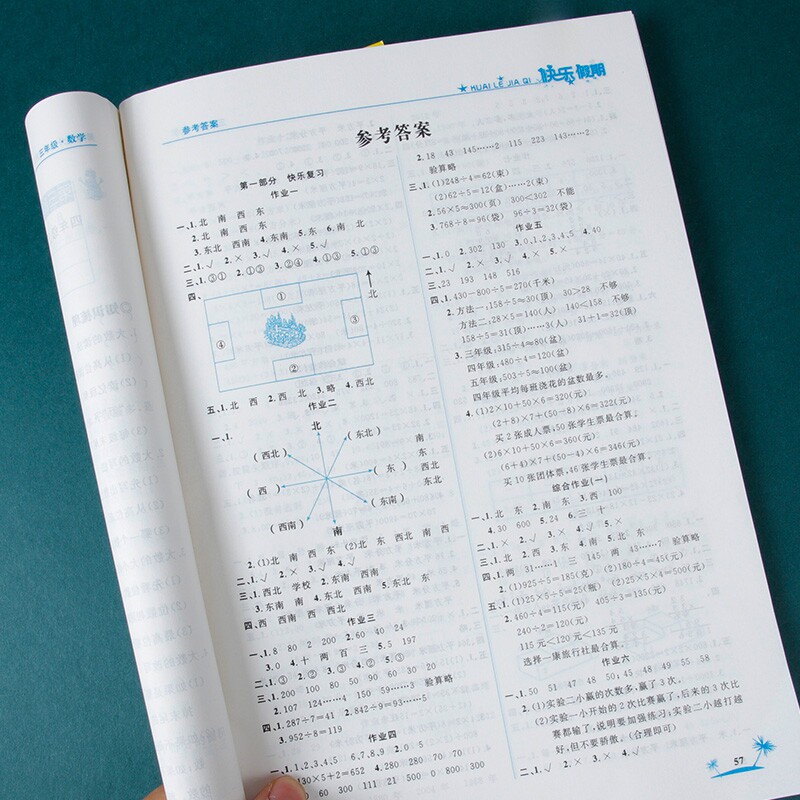 三年级·数学
参考答案
HUAI LE JIA QI 快乐假期
参考答案
第一部分 快乐复习
作业一
一、1.北 南 西 东
2.北 南 西 东
3.东北 西南 4.东南 5.东 6.南 北
二、1.√ 2.× 3.√ 4.× 5.√
三、1.③① 2.①③ 3.②④ 4.①③ 5.①③
四、
①
北
③
④
②
五、1.北 西 2.西 北 3.略 4.西北
作业二
一、1.
北
(西北)
(东北)
南
东
(西)
(东)
西北
东北
(西南)
(东南)
南
2.(1)北 南 西 东 (2)北 东 西北 南 西
二、1.√ 2.× 3.√ 4.√
三、1.西北 学校 2.东南 西南
3.东南 南 4.东北 西南 5.东北 东
四、西 西南 西 西北
作业三
一、1.8 80 2 200 2.60 40 24
3.0 4.十 两 百 三 5.5 197
二、1.③ 2.② 3.③ 4.② 5.③
三、1.200 100 80 50 90 60 30 20
2.107 124……4 150 59……3 验算略
四、1.287÷7=41 2.842÷9=93……5
3.952÷8=119
作业四
一、1.1,2,3,4,5 2.4,5 6,7,8,9 2.0 5
430×5+2=652 4.280 280 70 70
60 300 111 21 500 0 800 300
2.18 43 145……2 115 223 143……2
验算略
三、1.(1)248÷4=62(束)
(2)62÷5=12(盒)……2(束)
2.56×5≈300(页) 300<302 不能
3.768÷8=96(袋) 96÷3=32(袋)
作业五
一、1.0 2.302 130 3.0,1,2,3,4,5 4.40
二、1.√ 2.× 3.√ 4.× 5.×
三、23 193 148 516
四、1.430-800÷5=270(千米)
2.方法一:158÷5≈30(顶) 30>28 不够
方法二:28×5=140(人) 140<158 不够
158÷5=31(顶)……3(人) 31+1=32(顶)
3.三年级:315÷4≈80(盆)
四年级:480÷4=120(盆)
五年级:503÷5≈100(盆)
四年级平均每班浇花的盆数最多。
4.(1)2×10+50×6=320(元)
(2+8)×7+(50-8)×6=322(元)
买2张成人票,50张学生票最合算。
(2)6×10+50×6=360(元)
(6+4)×7+(50-4)×6=346(元)
买10张团体票,46张学生票最合算。
综合作业(一)
一、1.北 东 2.南 东 3.西 100
4.30 600 5.24 6.三 十
二、1.× 2.√ 3.× 4.√ 5.×
三、1.北 2.西 3.东 4.南 5.北 东
四、1.两 31……1 三 145 两 43……7 验算略
2.(1)925÷5=185(克) (2)180÷4=45(元)
五、1.(1)25×5÷5=25(瓶) (2)25×5×4=500(元)
2.460÷4=115(元) 405÷3=135(元)
240÷2=120(元)
115元<120元<135元
选择一康旅行社最合算。
作业六
一、1.50 51 47 48 50;45 48 49 55 58
2.(1)实验二小赢的次数多,赢了3次。
(2)实验一小开始的2次比赛赢了,后来的3次比
赛都输了,说明要加强练习;实验二小越打越
好,但不要骄傲。(合理即可)
二、1.√ 2.× 3.× 4.√
57